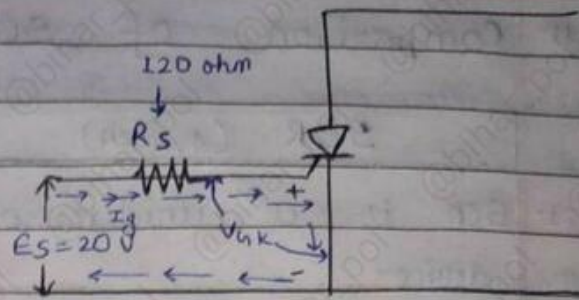 120 ohm
Rs
Ig
+
Es = 20 V
VgK
-